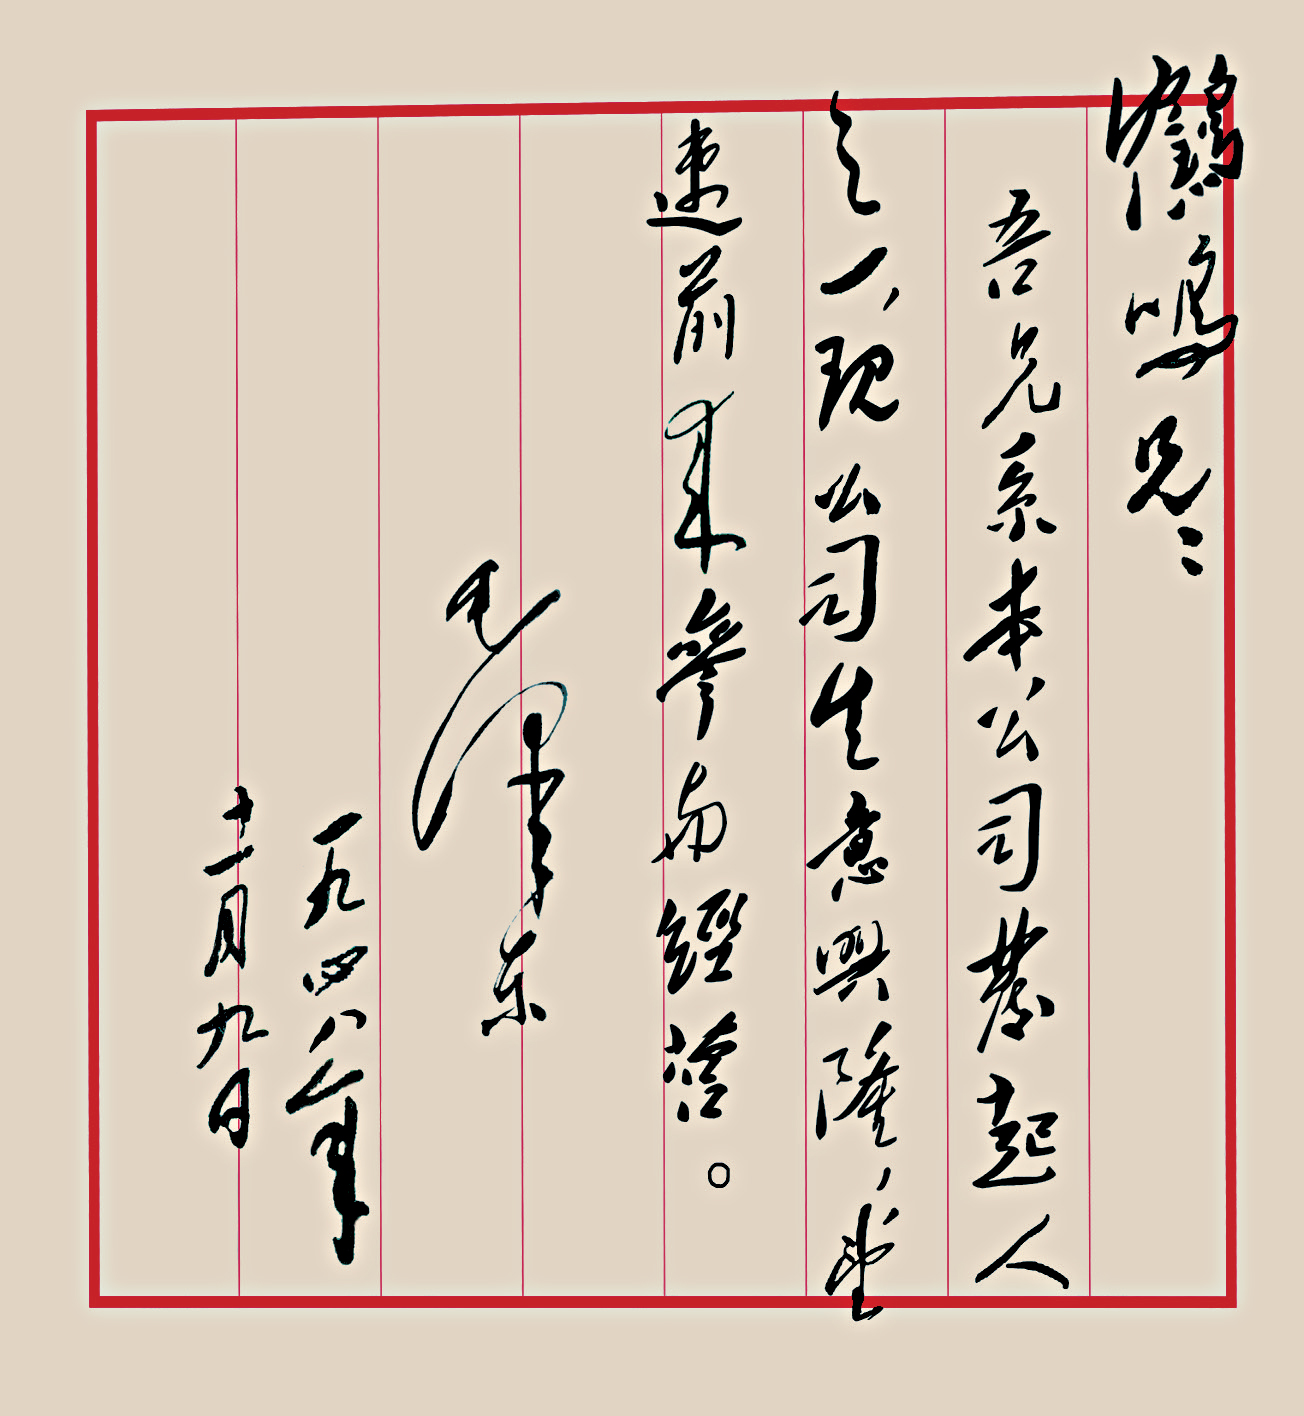 鹤鸣兄:
吾兄系本公司發起人
之一,现公司生意興隆,望
速前来參与經营。
毛泽东
一九四八年
十一月九日